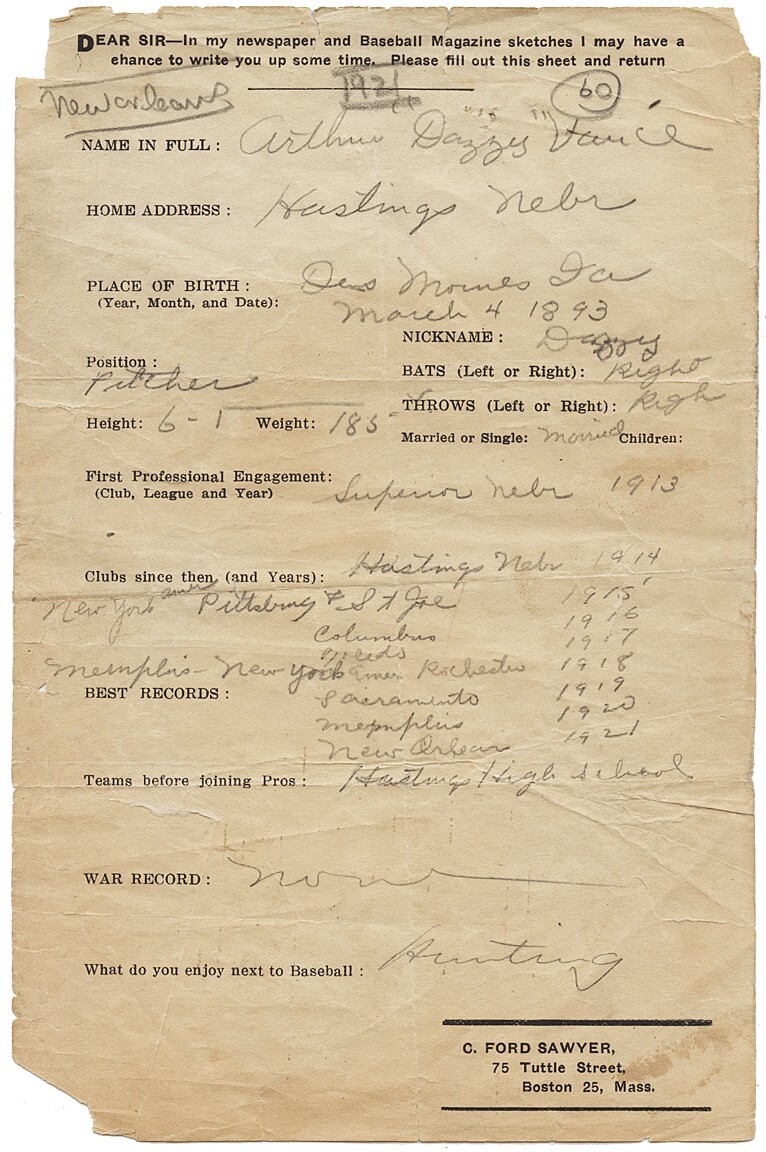 DEAR SIR—In my newspaper and Baseball Magazine sketches I may have a
chance to write you up some time. Please fill out this sheet and return
New orleans
1921
60
NAME IN FULL: Arthur "Dazzy" Vance
HOME ADDRESS: Hastings Nebr
PLACE OF BIRTH: Des Moines Ia
(Year, Month, and Date): March 4 1893
NICKNAME: Dazzy
Position: Pitcher
BATS (Left or Right): Right
THROWS (Left or Right): Righ
Height: 6-1 Weight: 185
Married or Single: Married Children:
First Professional Engagement:
(Club, League and Year) Superior Nebr 1913
Clubs since then (and Years): Hastings Nebr 1914
New York Amer Pittsburg & St Joe 1915
Columbus 1916
1917
Memphis - New York Amer Rochester 1918
BEST RECORDS: Sacramento 1919
Memphis 1920
New Orlean 1921
Teams before joining Pros: Hastings High School
WAR RECORD: None
What do you enjoy next to Baseball: Hunting
C. FORD SAWYER,
75 Tuttle Street,
Boston 25, Mass.